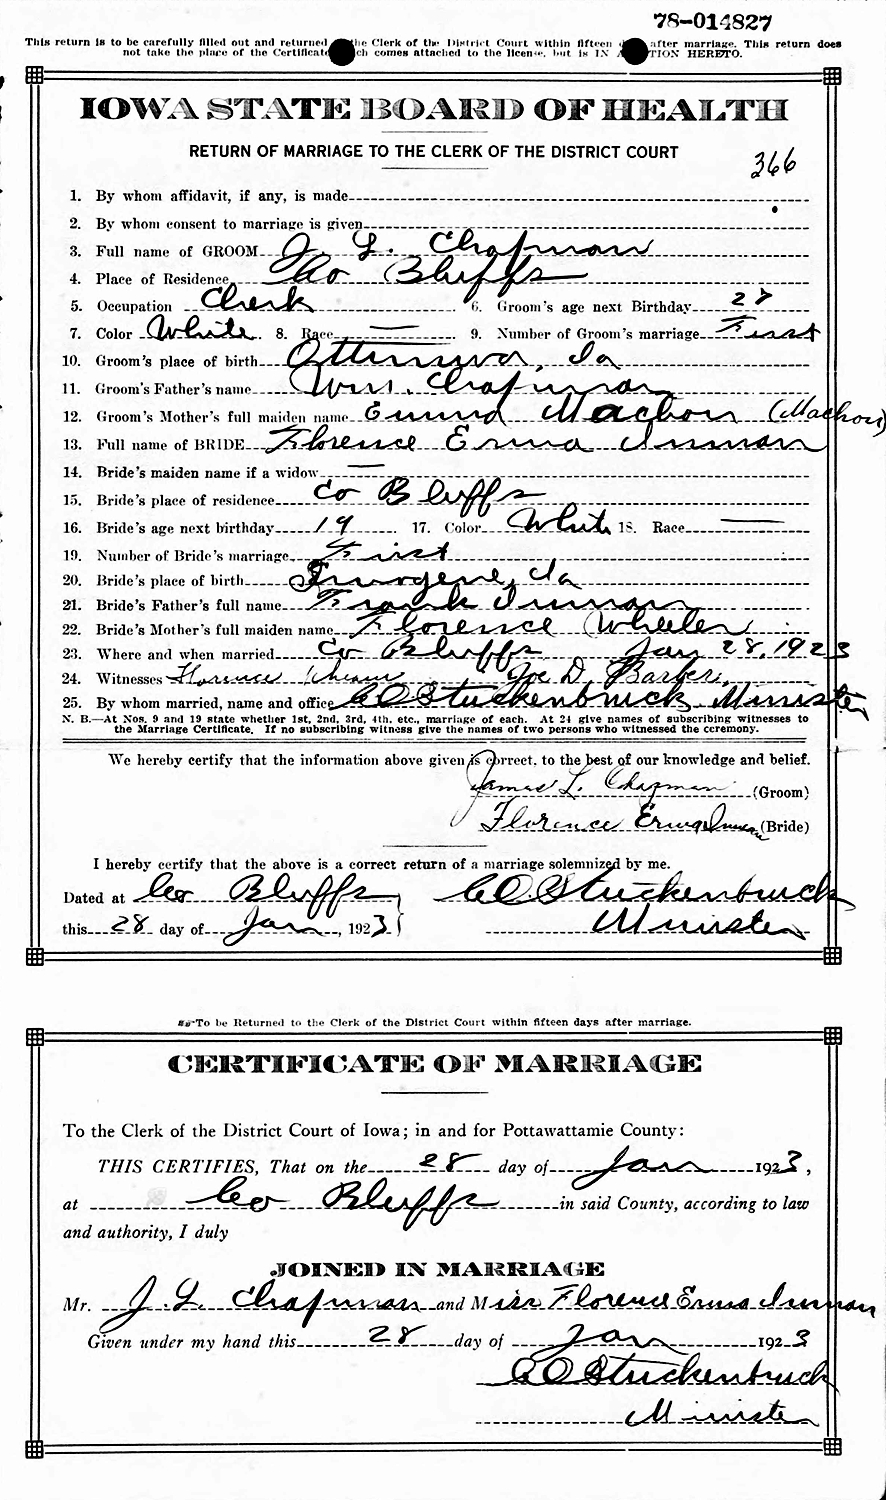 78-014827
This return is to be carefully filled out and returned the Clerk of the District Court within fifteen after marriage. This return does
not take the place of the Certificate ch comes attached to the license, but is IN TION HERETO.
IOWA STATE BOARD OF HEALTH
RETURN OF MARRIAGE TO THE CLERK OF THE DISTRICT COURT
366
1. By whom affidavit, if any, is made
2. By whom consent to marriage is given
3. Full name of GROOM J. L. Chapman
4. Place of Residence Co Bluffs
5. Occupation Clerk 6. Groom's age next Birthday 28
7. Color White 8. Race — 9. Number of Groom's marriage First
10. Groom's place of birth Ottumwa, Ia
11. Groom's Father's name Wm. Chapman
12. Groom's Mother's full maiden name Emma Machon (Machon)
13. Full name of BRIDE Florence Erma Inman
14. Bride's maiden name if a widow —
15. Bride's place of residence Co Bluffs
16. Bride's age next birthday 19 17. Color White 18. Race —
19. Number of Bride's marriage First
20. Bride's place of birth Imogene, Ia
21. Bride's Father's full name Frank Inman
22. Bride's Mother's full maiden name Florence Wheeler
23. Where and when married Co Bluffs Jan 28, 1923
24. Witnesses Florence Joe D. Barker,
25. By whom married, name and office C O Stuckenbruck Minister
N. B.—At Nos. 9 and 19 state whether 1st, 2nd, 3rd, 4th, etc., marriage of each. At 24 give names of subscribing witnesses to
the Marriage Certificate. If no subscribing witness give the names of two persons who witnessed the ceremony.
We hereby certify that the information above given is correct, to the best of our knowledge and belief.
James L. Chapman (Groom)
Florence Erma Inman (Bride)
I hereby certify that the above is a correct return of a marriage solemnized by me.
Dated at Co Bluffs C O Stuckenbruck
this 28 day of Jan, 1923 Minister
To be Returned to the Clerk of the District Court within fifteen days after marriage.
CERTIFICATE OF MARRIAGE
To the Clerk of the District Court of Iowa; in and for Pottawattamie County:
THIS CERTIFIES, That on the 28 day of Jan 1923,
at Co Bluffs in said County, according to law
and authority, I duly
JOINED IN MARRIAGE
Mr. J. L. Chapman and Miss Florence Erma Inman
Given under my hand this 28 day of Jan 1923
C O Stuckenbruck
Minister